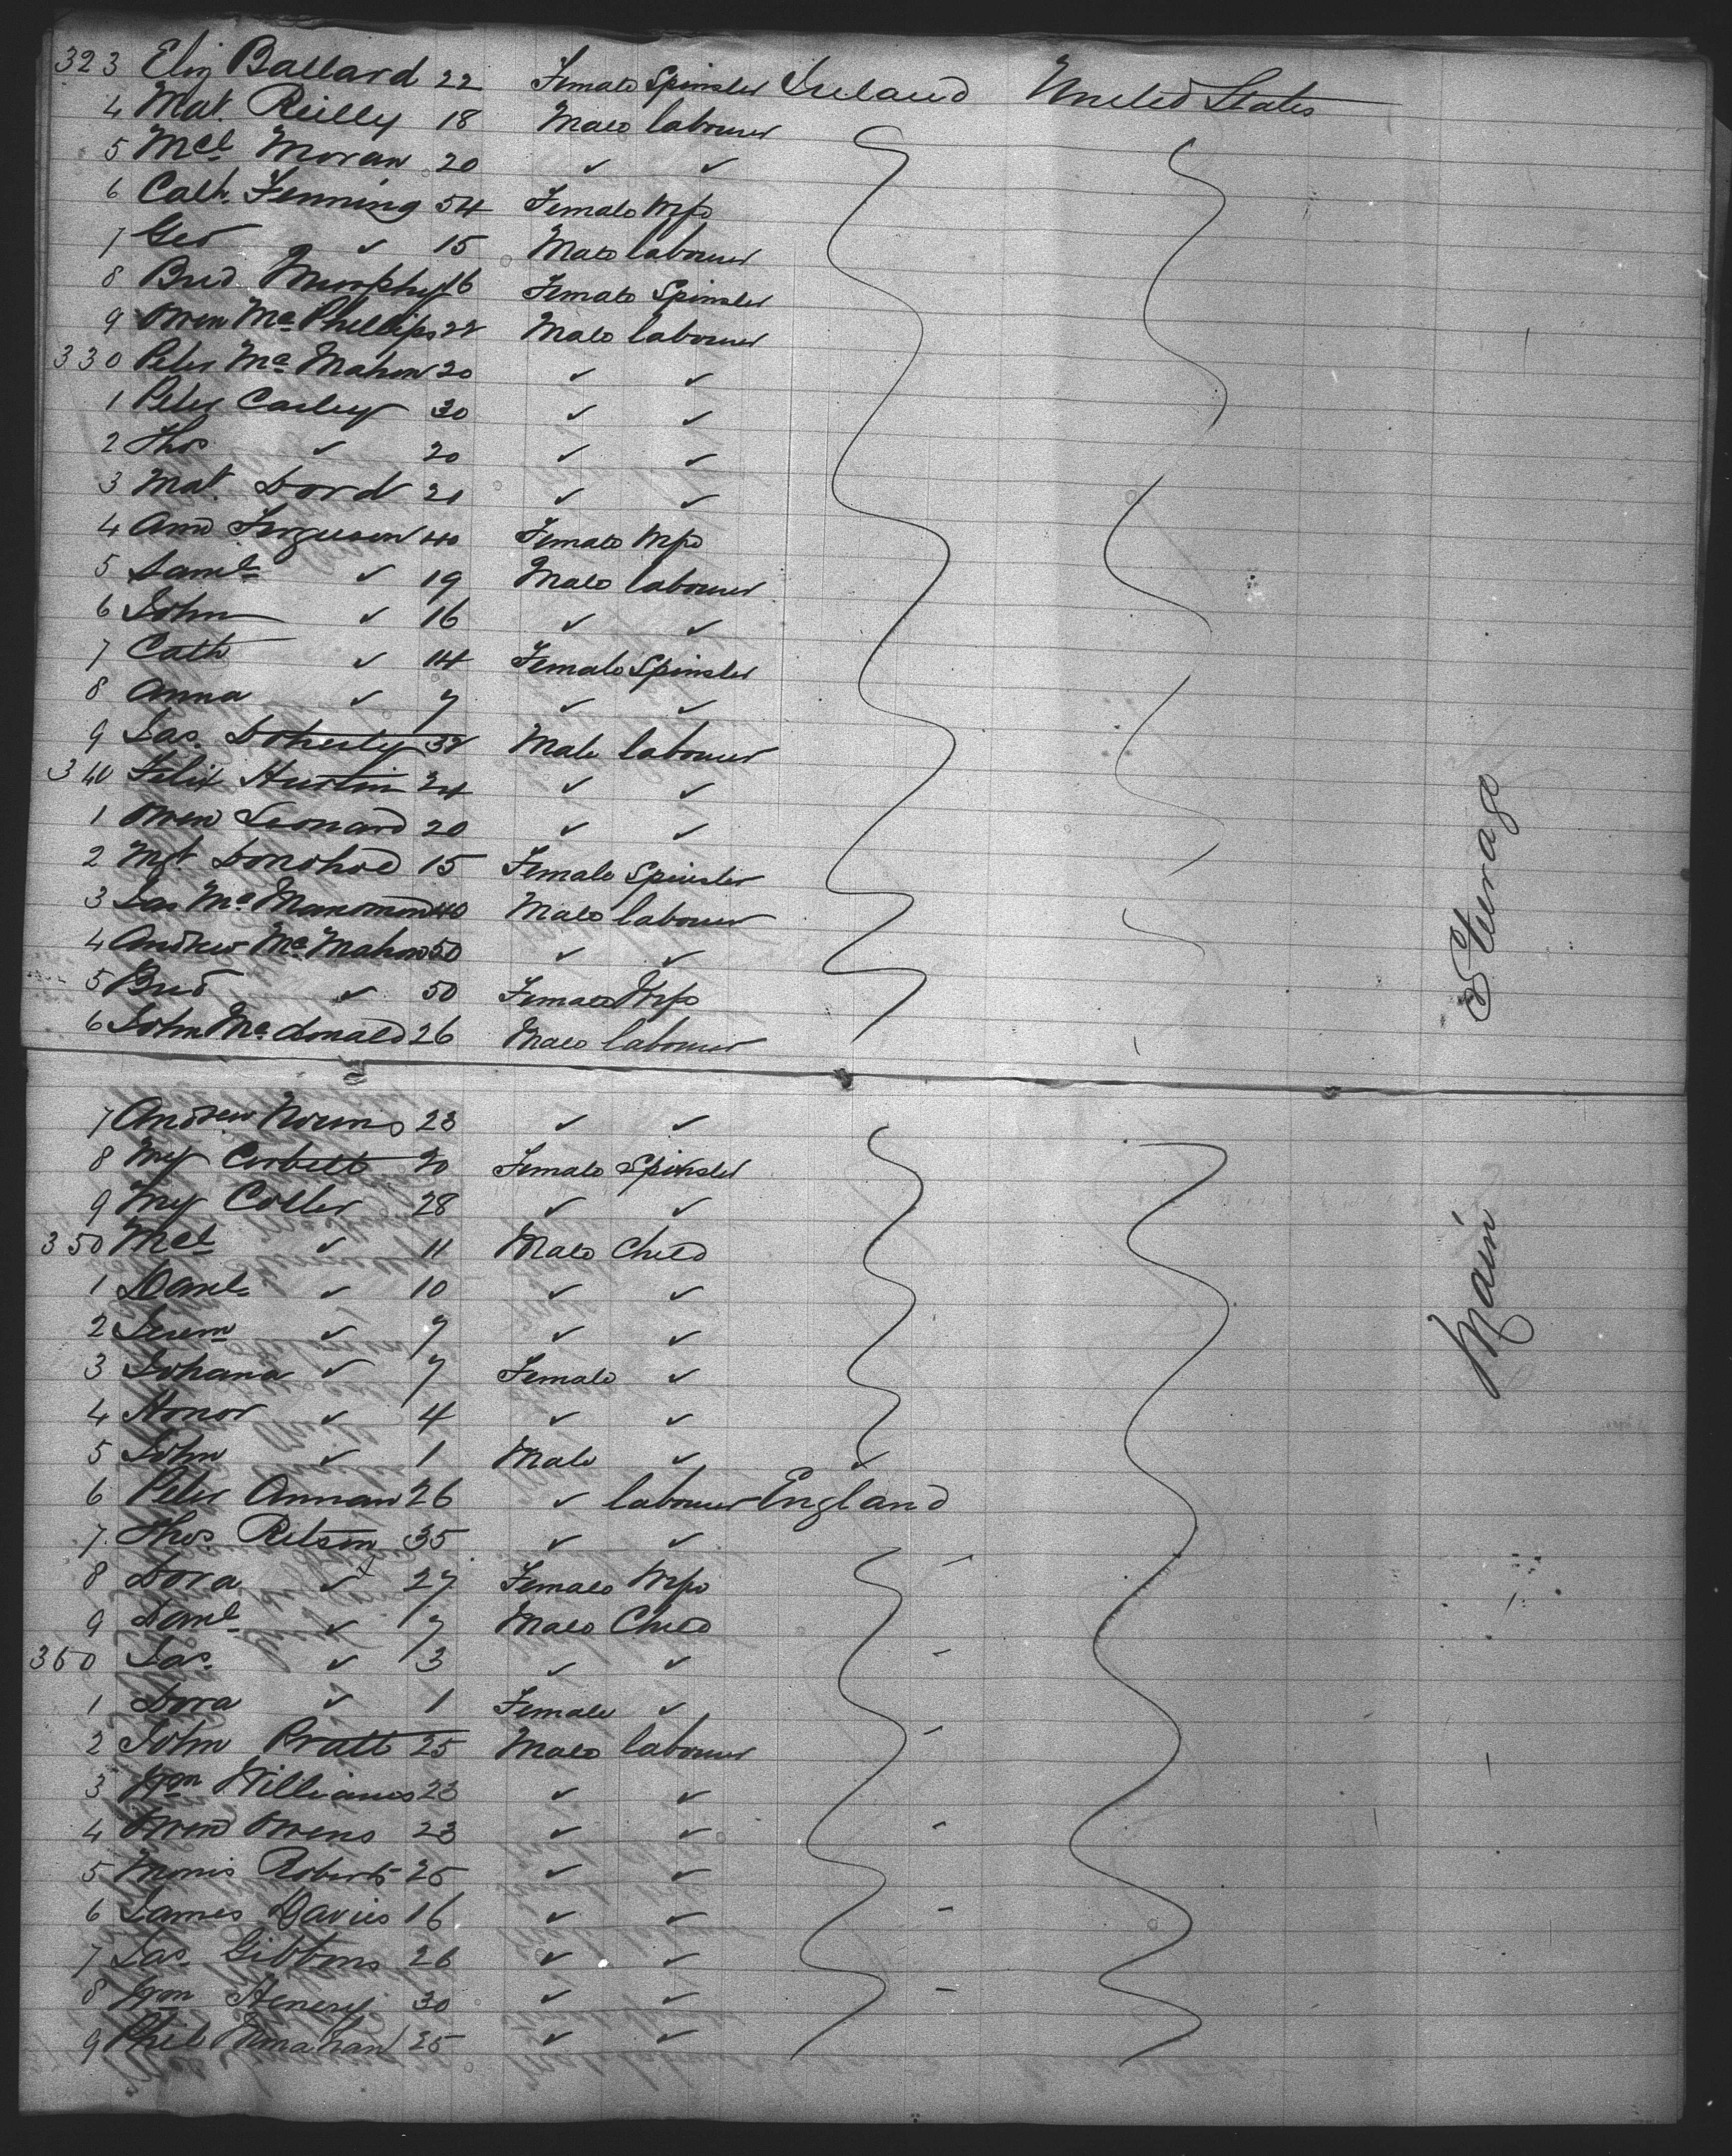 323 Eliz Ballard 22 Female Spinster Ireland United States
4 Mat. Reilly 18 Male labourer
5 Mcl Moran 20 ✓ ✓
6 Cath. Fenning 54 Female Wife
7 Geo ✓ 15 Male labourer
8 Brid. Murphy 16 Female Spinster
9 Owen Mc Phillips 22 Male labourer
330 Peter Mc Mahon 20 ✓ ✓
1 Peter Carley 30 ✓ ✓
2 Thos ✓ 20 ✓ ✓
3 Mat. Dord 21 ✓ ✓
4 Ann Ferguson 40 Female Wife
5 Saml ✓ 19 Male labourer
6 John ✓ 16 ✓ ✓
7 Cath ✓ 14 Female Spinster
8 Anna ✓ 7 ✓ ✓
9 Jas. Doherty 32 Male labourer
340 Felix Hurtin 24 ✓ ✓
1 Owen Leonard 20 ✓ ✓
2 Mgt. Donohoe 15 Female Spinster
3 Jas Mc 40 Male labourer
4 Andrew Mc Mahon 50 ✓ ✓
5 Brid ✓ 50 Female Wife
6 John Mc donald 26 Male labourer
Steerage
7 Andrew 23 ✓ ✓
8 My Corbett 20 Female Spinster
9 My Coller 28 ✓ ✓
350 Mcl ✓ 11 Male Child
1 Danl ✓ 10 ✓ ✓
2 Jerem ✓ 9 ✓ ✓
3 Johana ✓ 7 Female ✓
4 Honor ✓ 4 ✓ ✓
5 John ✓ 1 Male ✓ ✓
Main
6 Peter Annan 26 ✓ labourer England
7 Thos. Ritson 35 ✓ ✓
8 Dora ✓ 27 Female Wife
9 Danl ✓ 7 Male Child
360 Jas. ✓ 3 ✓ ✓
1 Dora ✓ 1 Female ✓
2 John Pratt 25 Male labourer
3 Wm Williams 23 ✓ ✓
4 Owen Owens 23 ✓ ✓
5 Morris Roberts 25 ✓ ✓
6 James Davies 16 ✓ ✓
7 Jas. Gibbons 26 ✓ ✓
8 Wm Henery 30 ✓ ✓
9 Phil Monahan 25 ✓ ✓